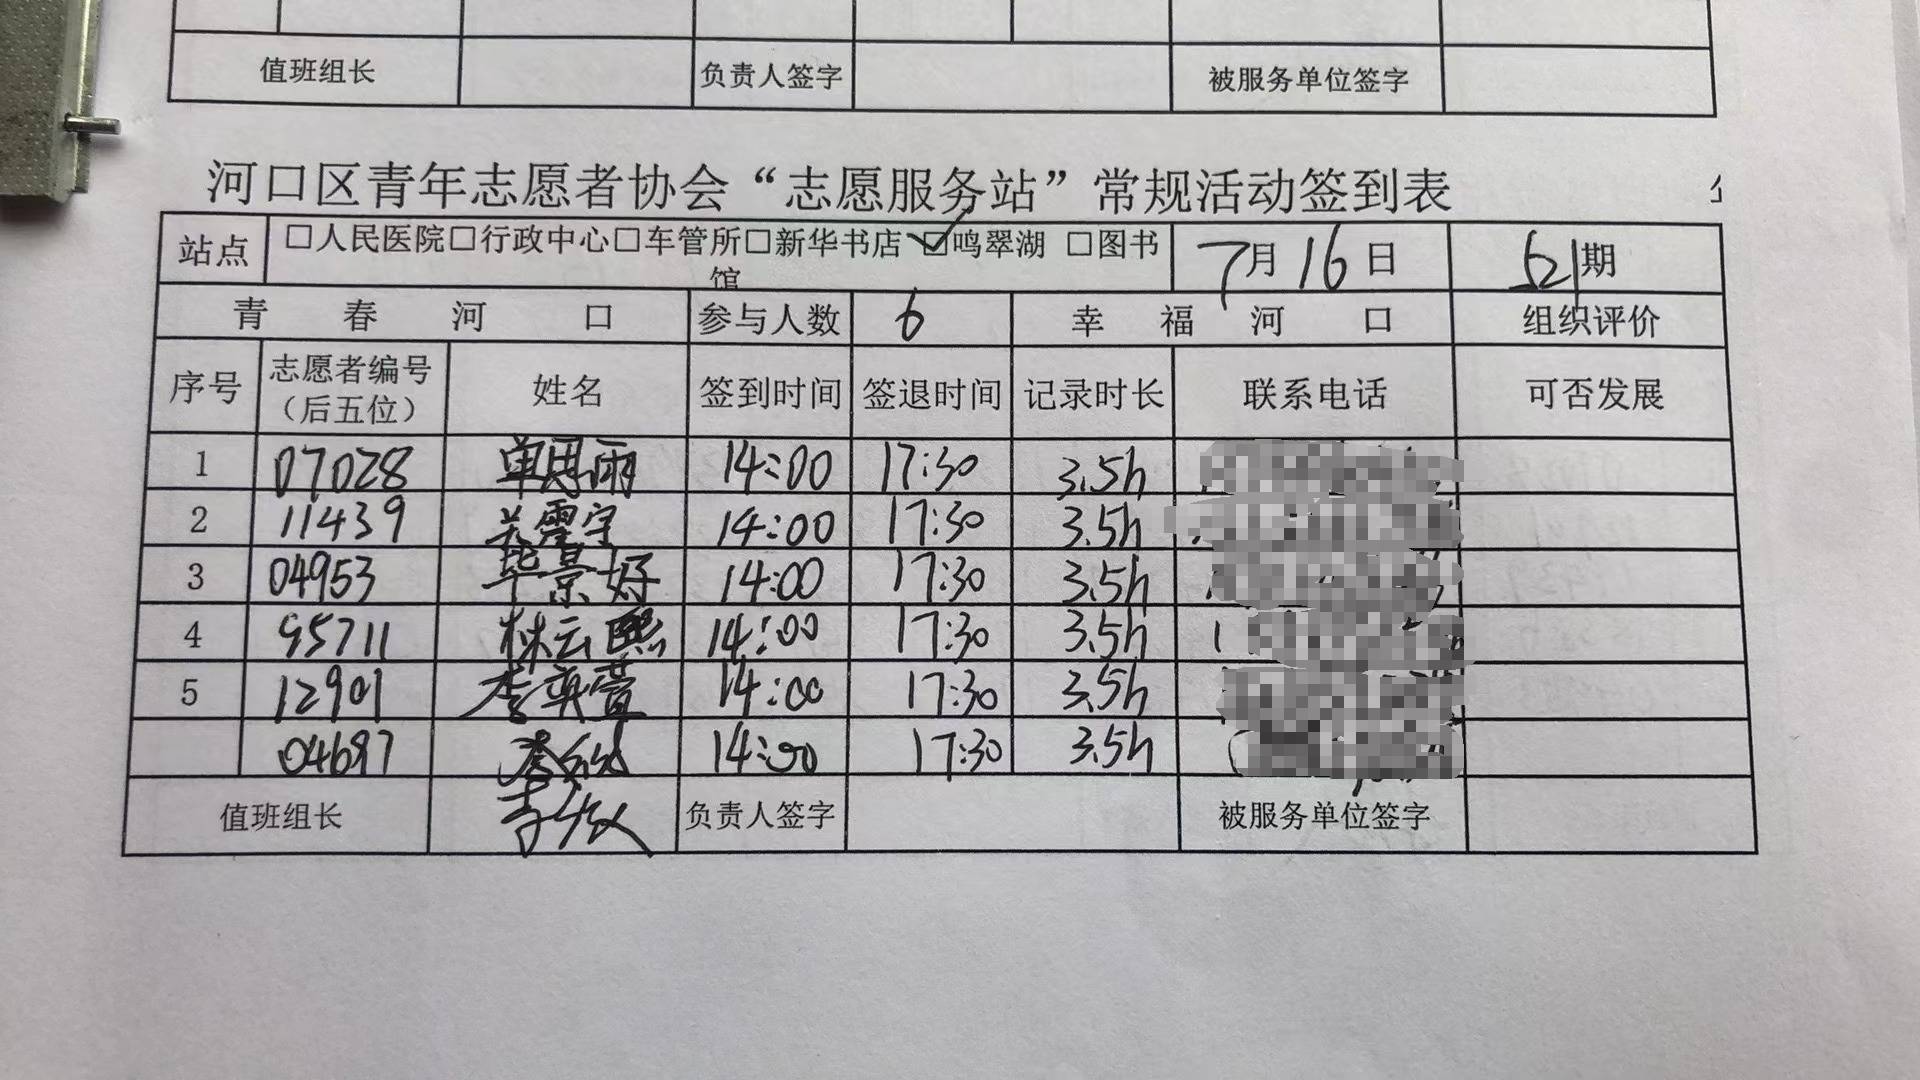 值班组长 负责人签字 被服务单位签字
河口区青年志愿者协会“志愿服务站”常规活动签到表
站点 □人民医院□行政中心□车管所□新华书店 ☑鸣翠湖 □图书馆 7月16日 521期
青春河口 参与人数 6 幸福河口 组织评价
序号 志愿者编号（后五位） 姓名 签到时间 签退时间 记录时长 联系电话 可否发展
1 07028 单思雨 14:00 17:30 3.5h
2 11439 14:00 17:30 3.5h
3 04953 毕景好 14:00 17:30 3.5h
4 95711 林云熙 14:00 17:30 3.5h
5 12901 李奕萱 14:00 17:30 3.5h
04697 14:00 17:30 3.5h
值班组长 负责人签字 被服务单位签字